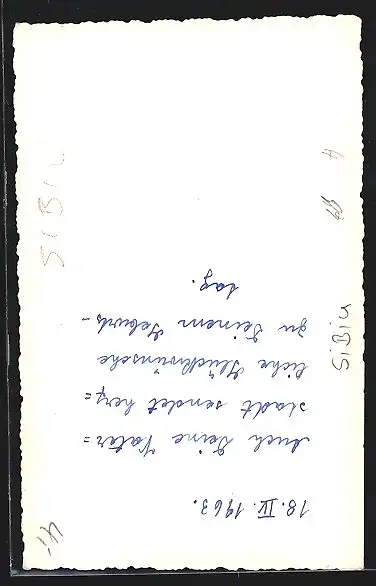 18. IV. 1963.
Auch Deine Vater=
stadt sendet herz=
liche Glückwünsche
zu Deinem Geburts-
tag.
SiBiU
SIBIU
4,-